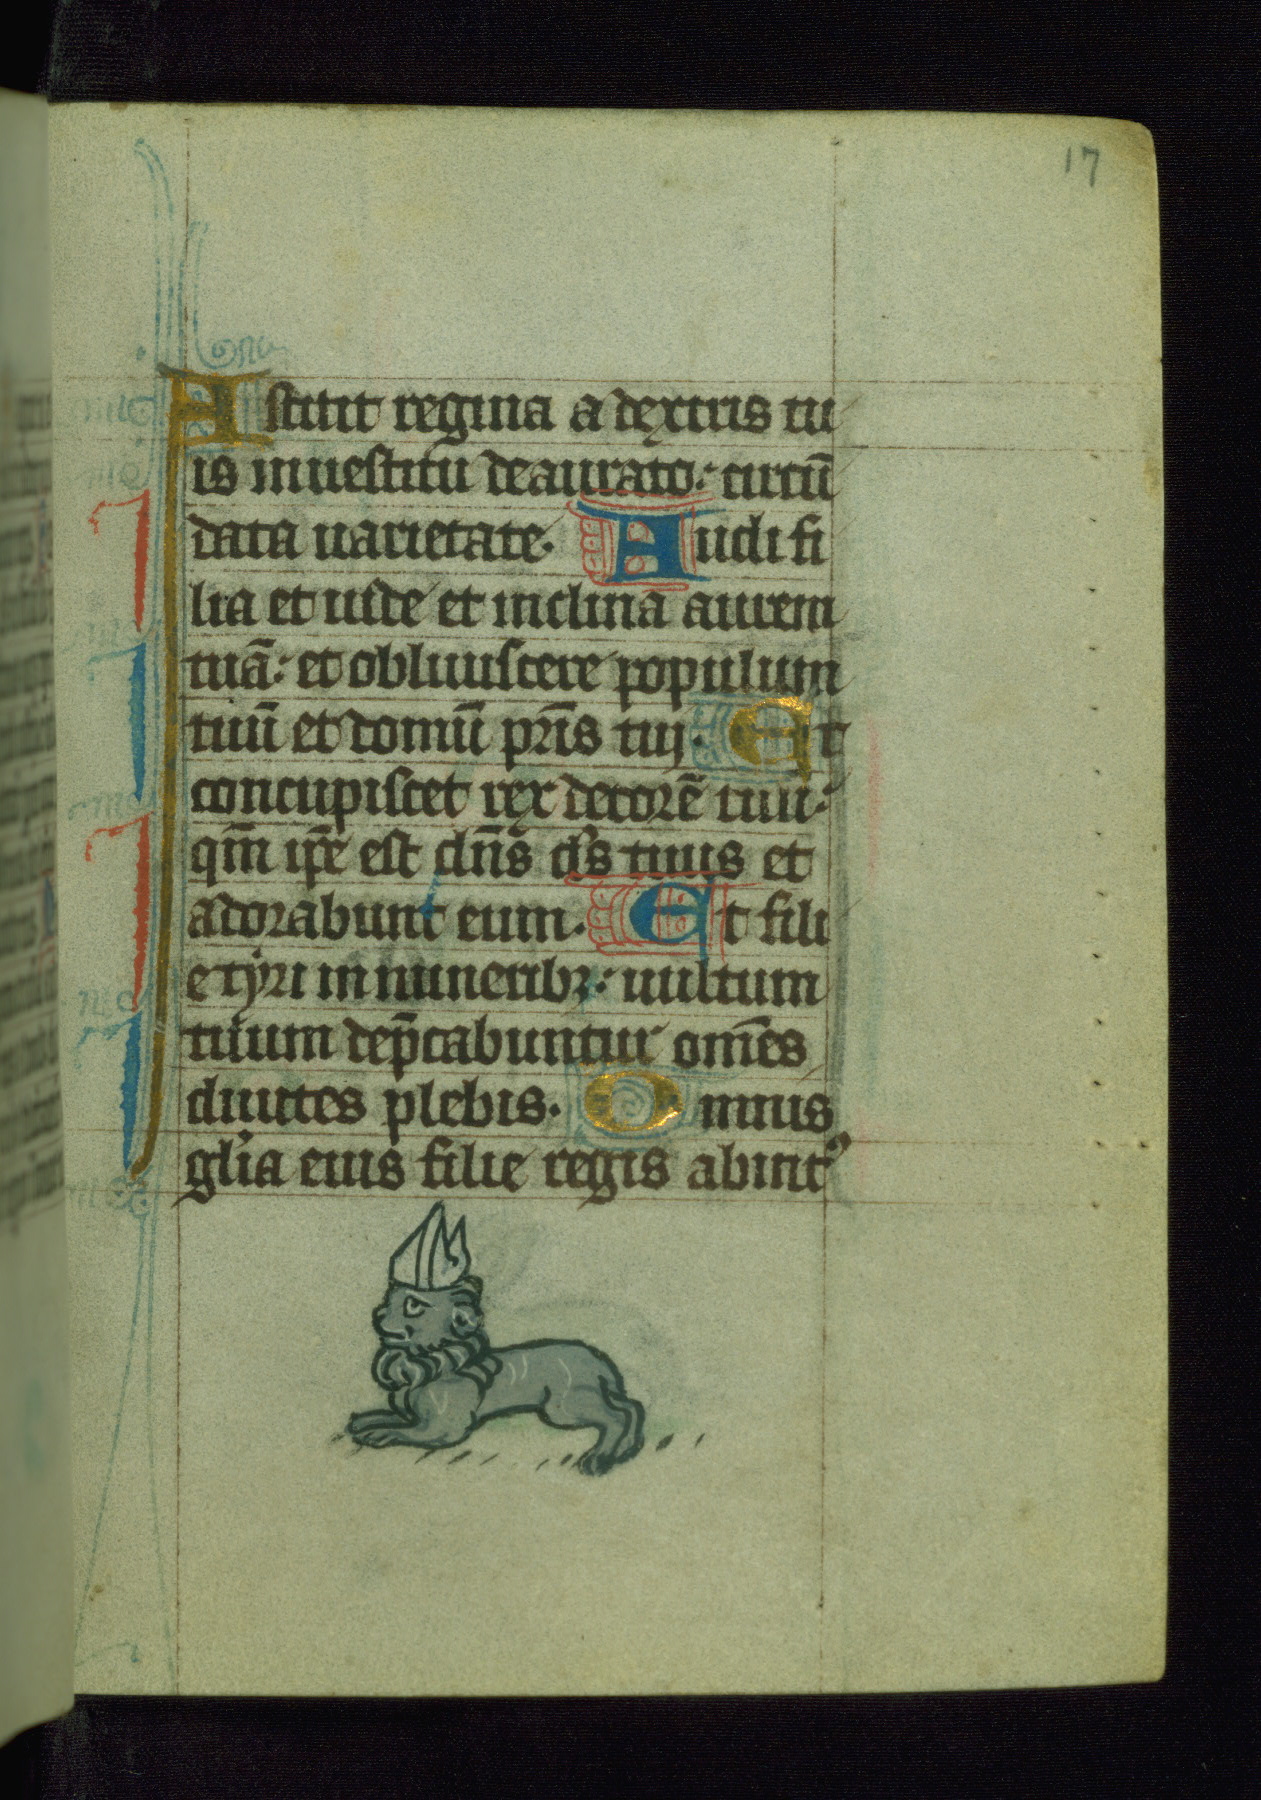 17
Astitit regina a dextris tu
is in uestitu deaurato: circū
data uarietate. Audi fi
lia et uide et inclina aurem
tuā: et obliuiscere populum
tuū et domū pr̄is tui. Et
concupiscet rex decorē tuū:
qm̄ ip̄e est dn̄s ds̄ tuus et
adorabunt eum. Et fili
e tyri in muneribꝫ: uultum
tuum dep̄cabuntur om̄es
diuites plebis. Omnis
gl̄ia eius filie regis ab int